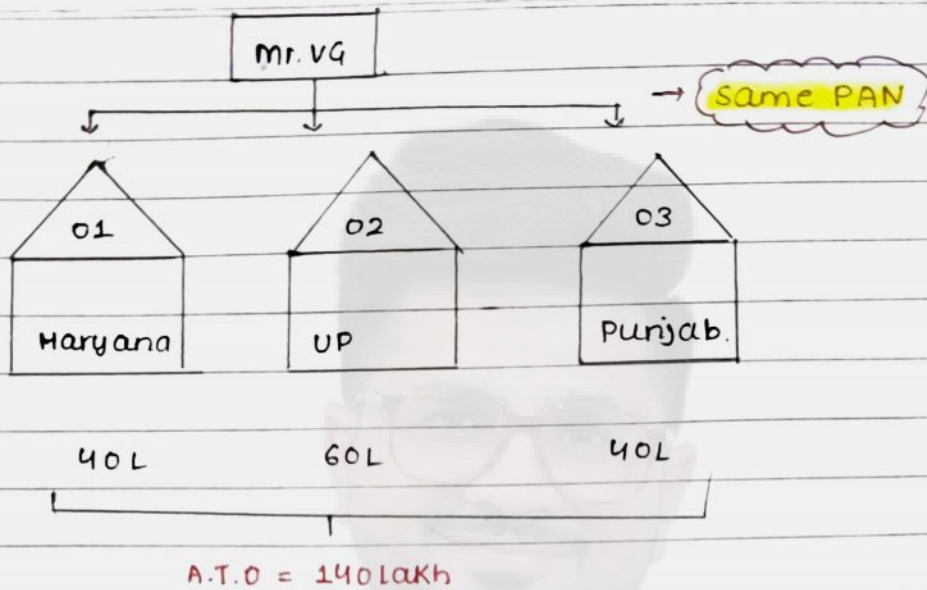 Mr. VG
→ Same PAN
01 02 03
Haryana UP Punjab.
40L 60L 40L
A.T.O = 140 lakh